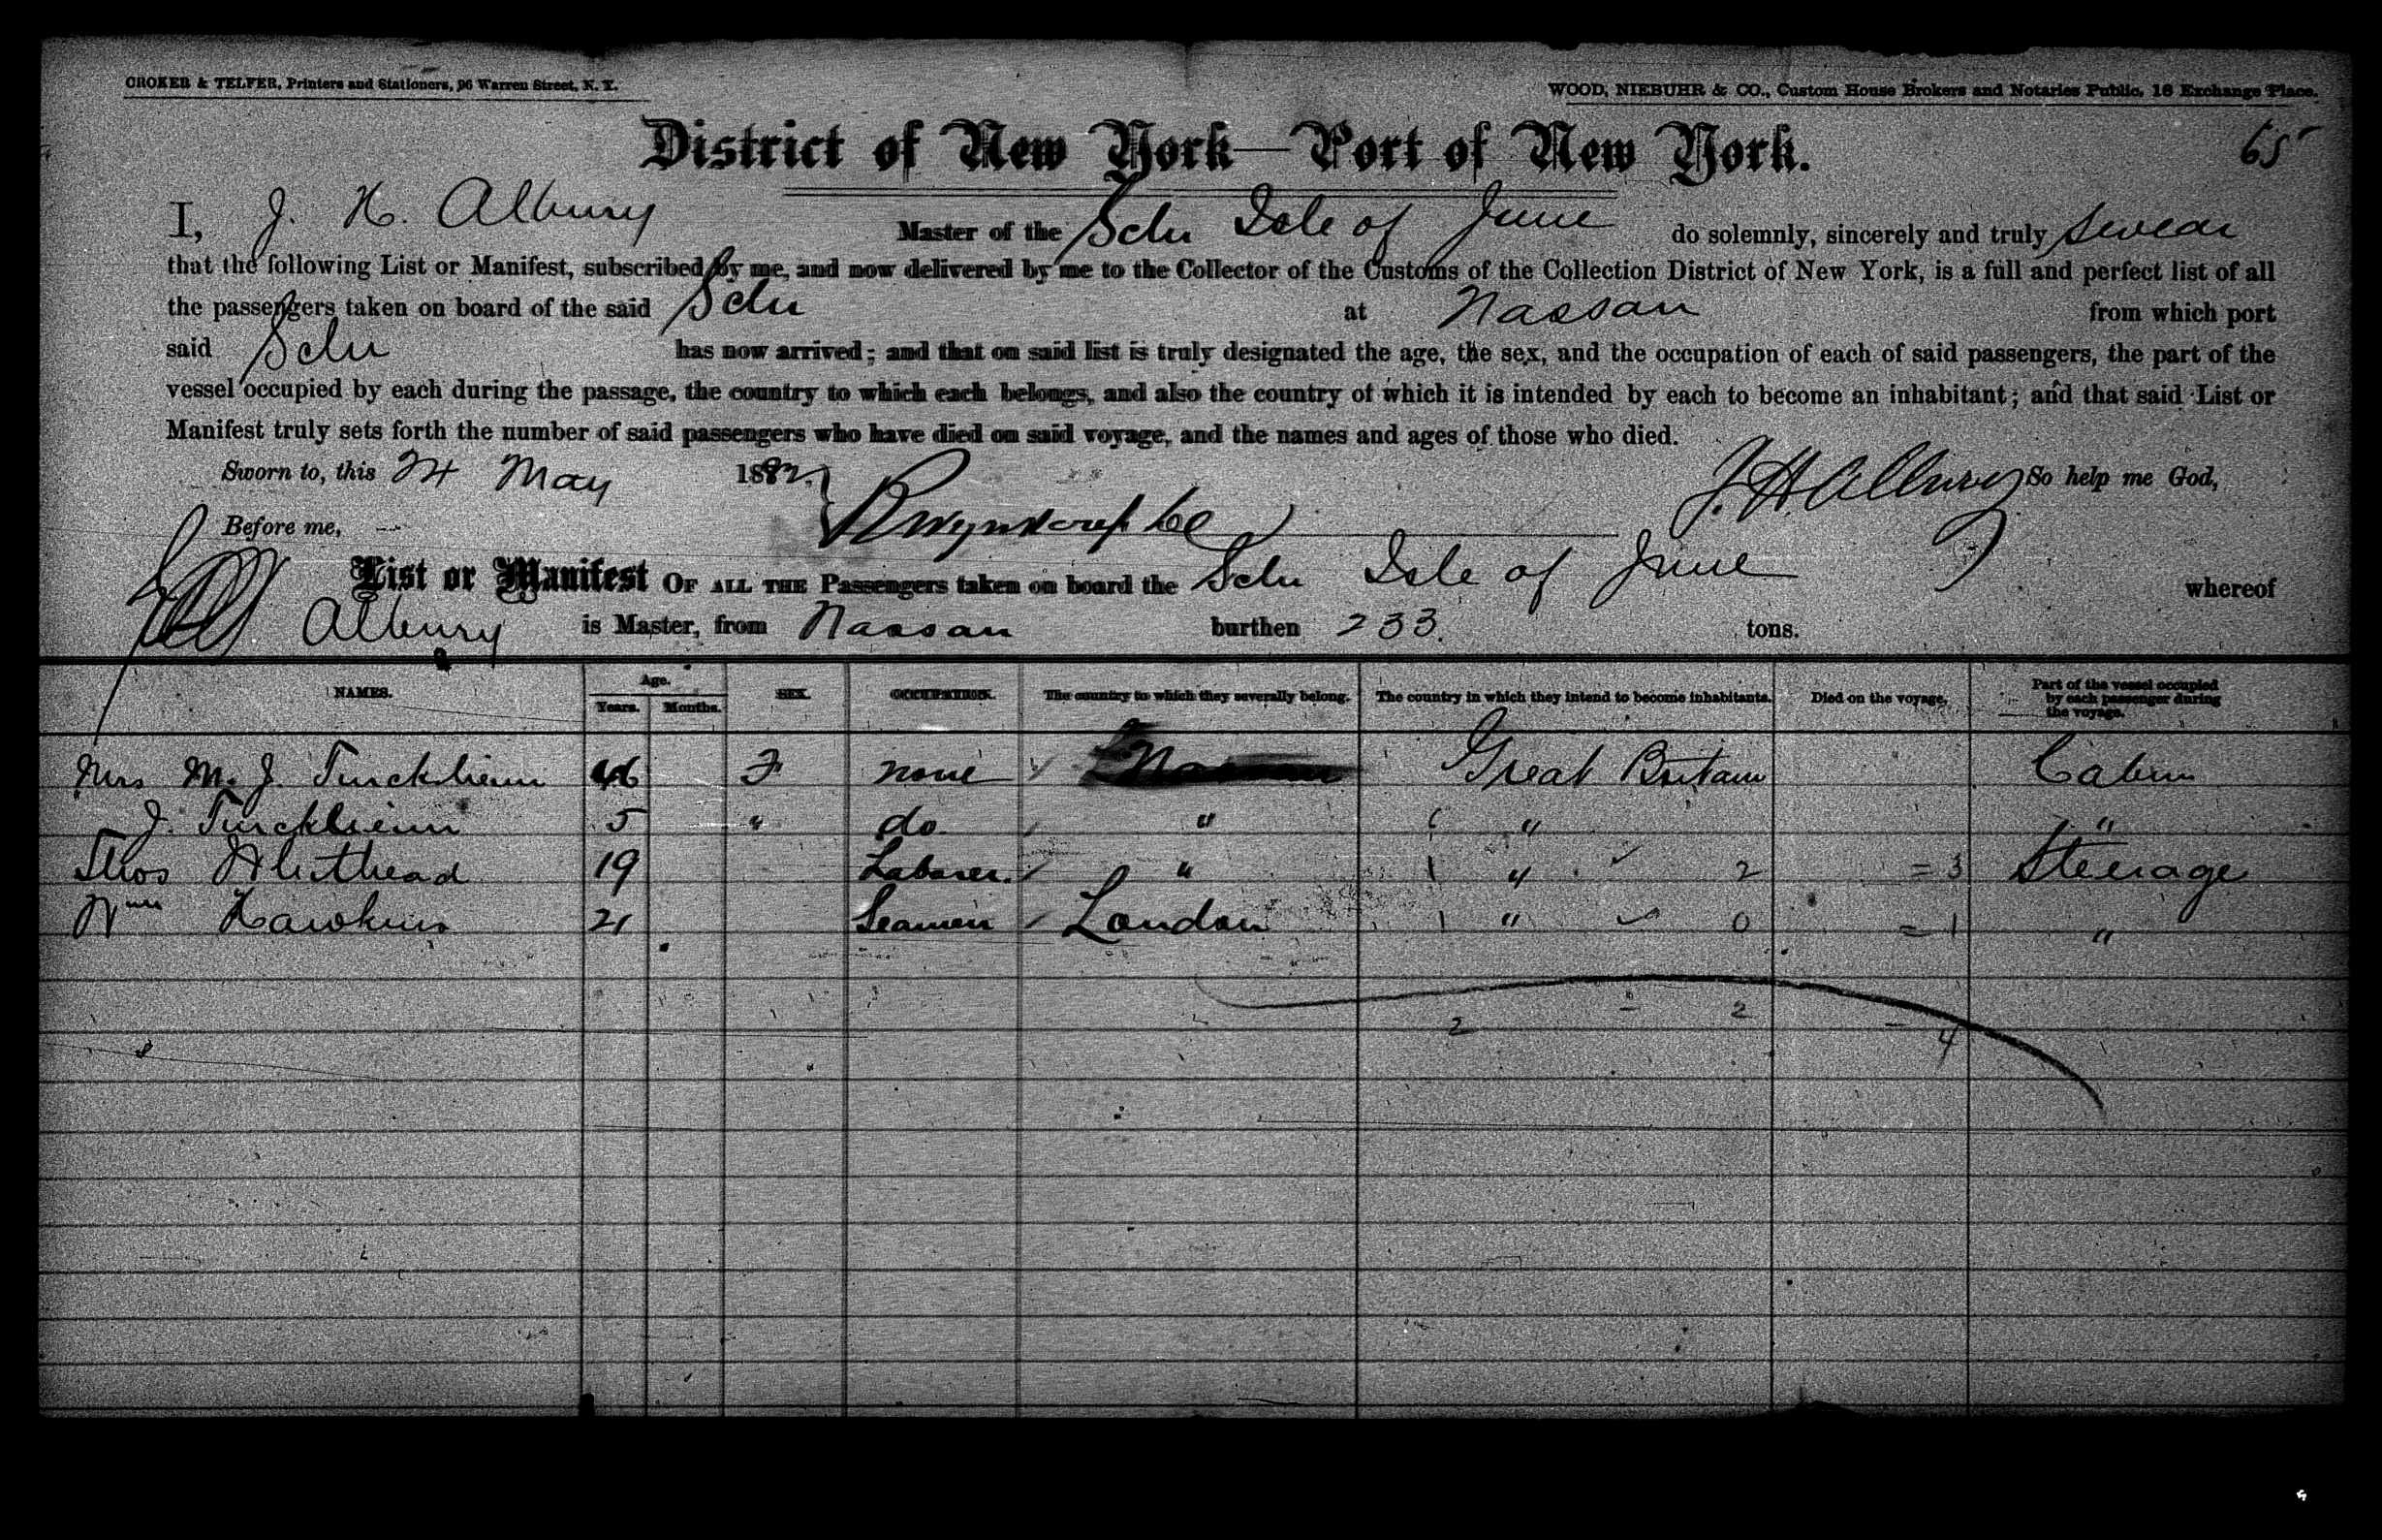 CROKER & TELFER, Printers and Stationers, 96 Warren Street, N. Y.
WOOD, NIEBUHR & CO., Custom House Brokers and Notaries Public, 18 Exchange Place.
District of New York—Port of New York.
65
I, J. H. Albury Master of the Schr Isle of June do solemnly, sincerely and truly swear
that the following List or Manifest, subscribed by me, and now delivered by me to the Collector of the Customs of the Collection District of New York, is a full and perfect list of all
the passengers taken on board of the said Schr at Nassau from which port
said Schr has now arrived; and that on said list is truly designated the age, the sex, and the occupation of each of said passengers, the part of the
vessel occupied by each during the passage, the country to which each belongs, and also the country of which it is intended by each to become an inhabitant; and that said List or
Manifest truly sets forth the number of said passengers who have died on said voyage, and the names and ages of those who died.
Sworn to, this 24 May 1882. J. H. Albury So help me God,
Before me,
List or Manifest OF ALL THE Passengers taken on board the Schr Isle of June whereof
Albury is Master, from Nassau burthen 233. tons.
NAMES. Age. Years. Months. SEX. OCCUPATION. The country to which they severally belong. The country in which they intend to become inhabitants. Died on the voyage. Part of the vessel occupied by each passenger during the voyage.
Mrs M. J. 46 F none Nassau Great Britain Cabin
J. 5 " do " " "
Thos 19 Laborer. " 1 " 2 = 3 Steerage
Wm Hawkins 21 Seamen London 1 " 0 = 1 "
2 - 2 - 4